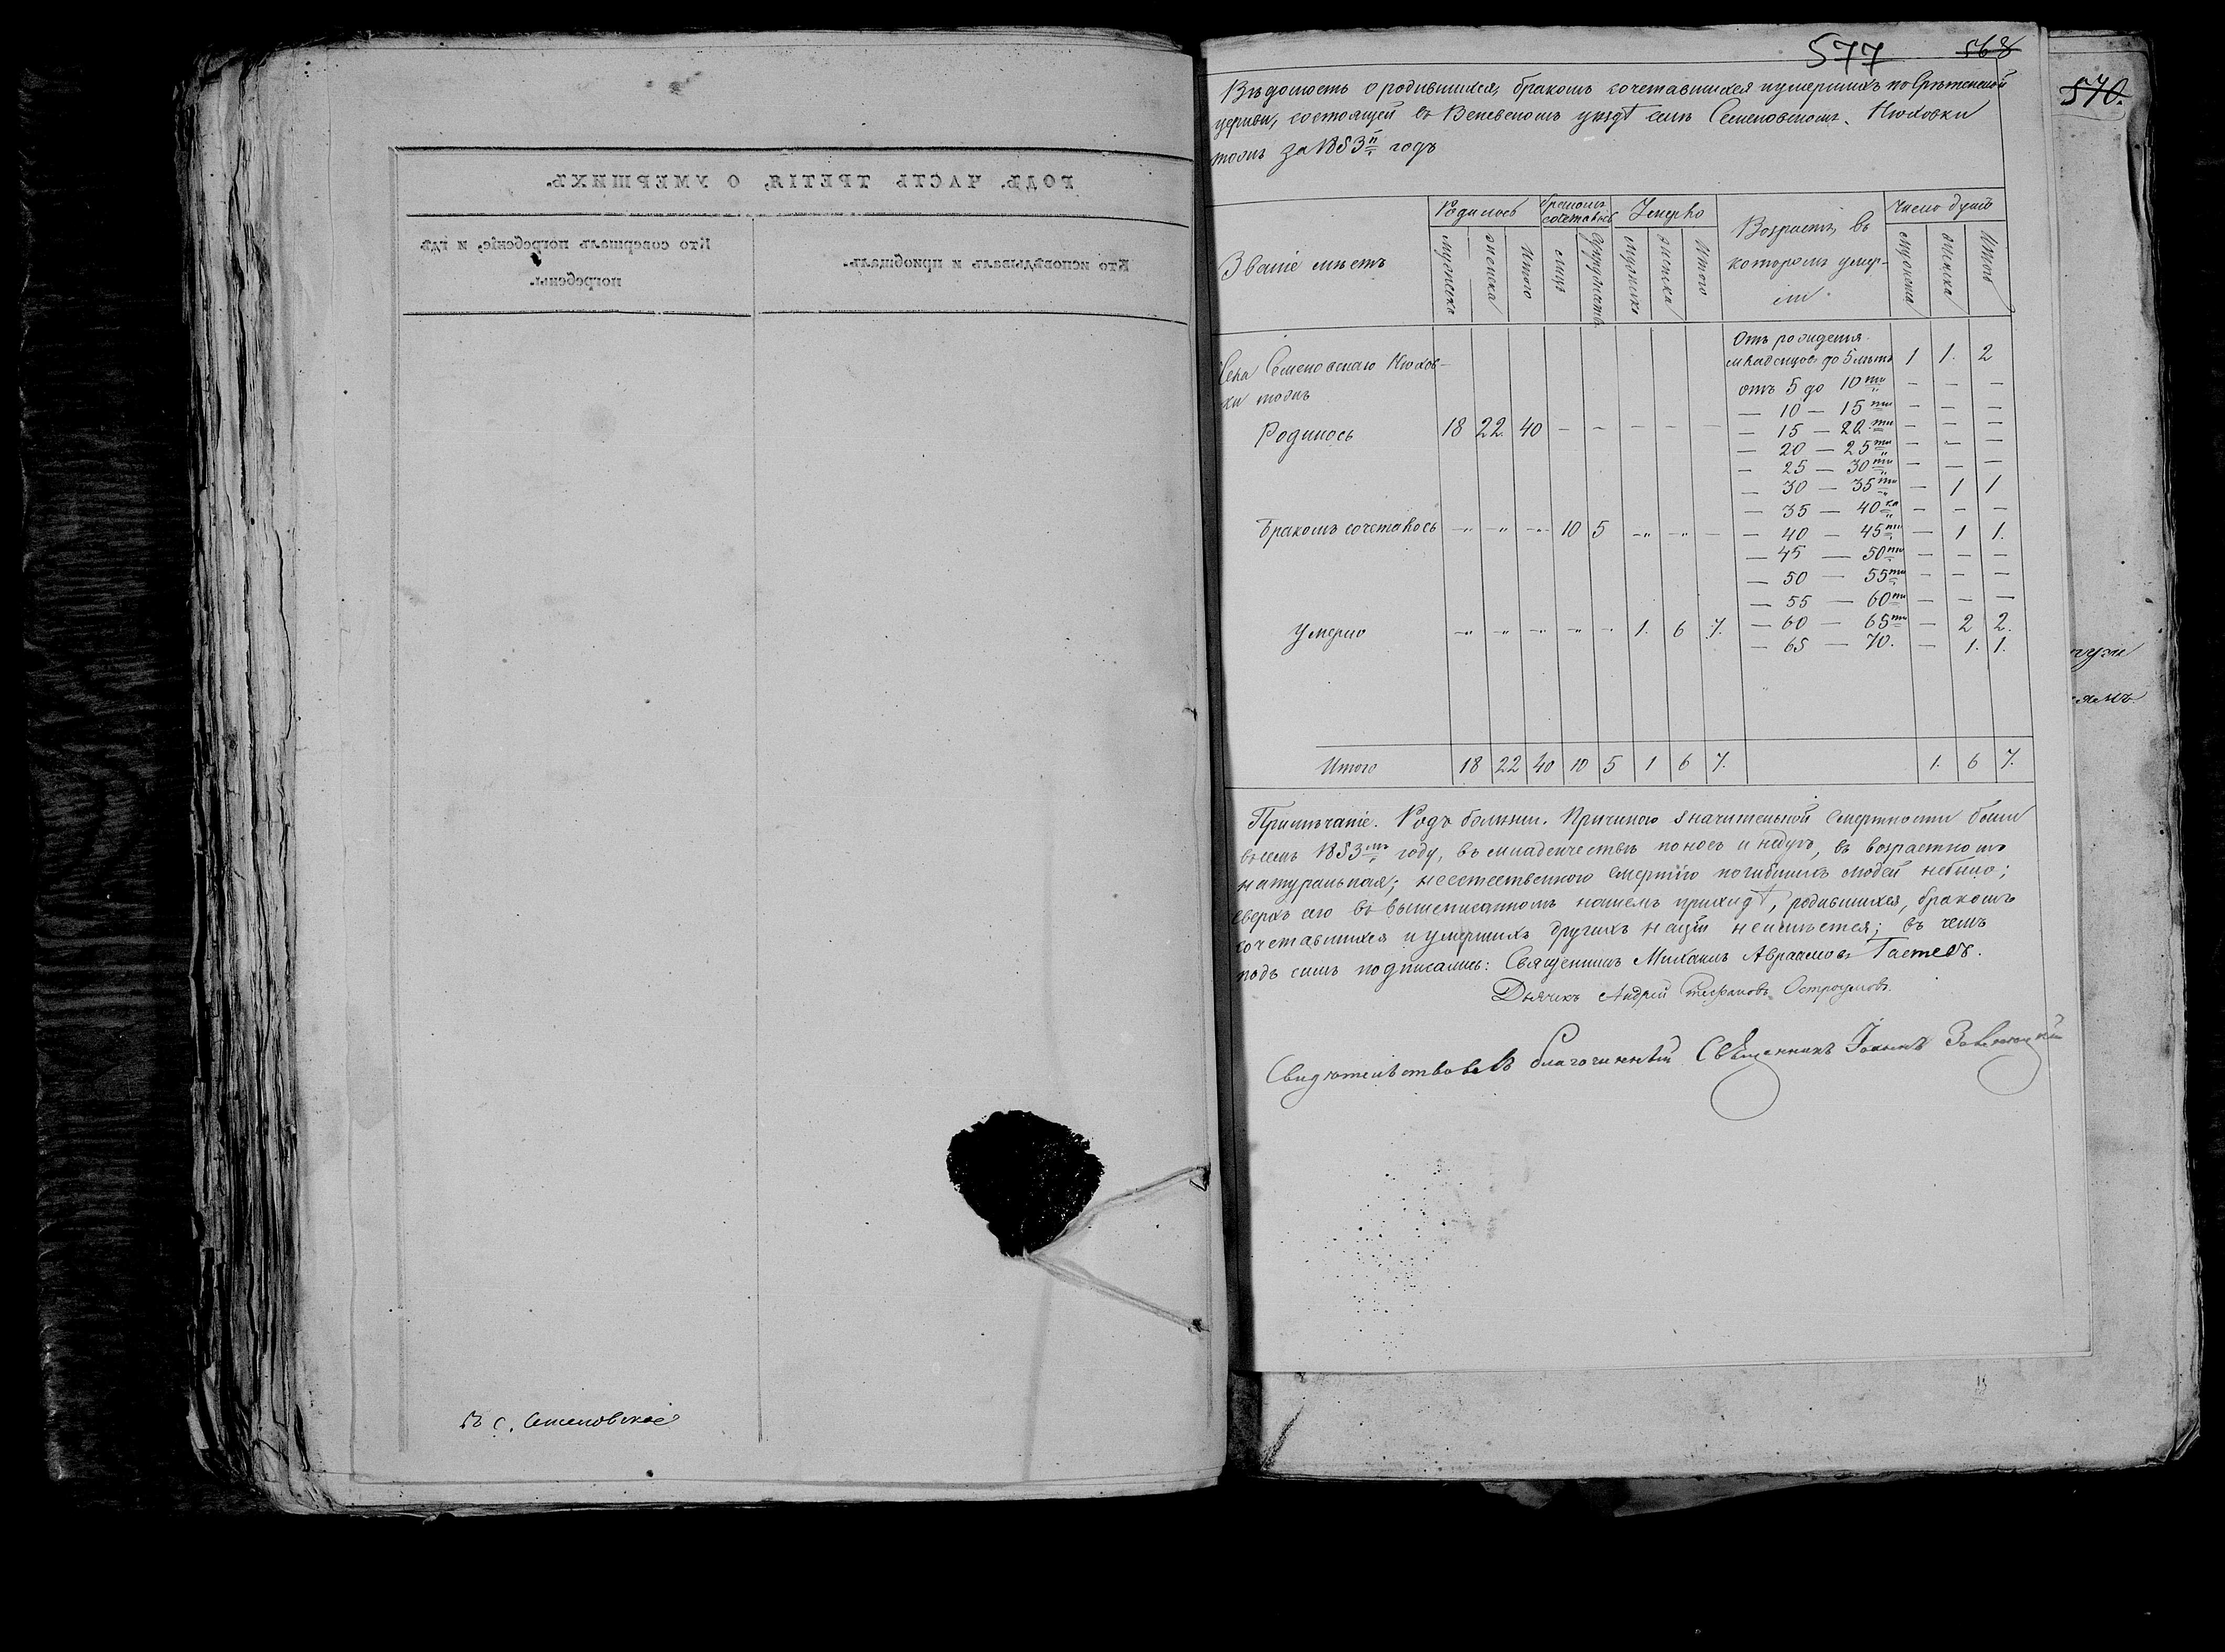 РОДЪ. ЧАСТЬ ТРЕТІЯ, О УМЕРШИХЪ.
Кто исповѣдывалъ и пріобщалъ.
Кто совершалъ погребеніе, и гдѣ
погребены.
въ с. Семеновское
577 568
570.
Вѣдомость о родившихся, бракомъ сочетавшихся и умершихъ по Срѣтенской
церкви, состоящей въ Веневскомъ уѣздѣ селѣ Семеновскомъ, Нюховки
тожъ за 1853й годъ
Званіе мѣстъ
Родилось
мужеска
женска
Итого
бракомъ
сочеталось
лицъ
супружествъ
Умерло
мужеска
женска
Итого
Возрастъ, въ
которомъ умер-
ли
Число душъ
мужеска
женска
Итого
Села Семеновскаго Нюхов-
ки тожъ
Родилось 18 22. 40 — — — — —
Бракомъ сочеталось —„— —„— —„— 10 5 —„— —„— —
Умерло —„— —„— —„— —„— — 1. 6 7.
Отъ рожденія
младенцовъ до 5 лѣтъ 1 1. 2
отъ 5 до 10ти — — —
— 10 — 15ти — — —
— 15 — 20ти — — —
— 20 — 25ти — — —
— 25 — 30ти — — —
— 30 — 35ти — 1 1
— 35 — 40ка — — —
— 40 — 45ти — 1 1.
— 45 — 50ти — — —
— 50 — 55ти — — —
— 55 — 60ти — — —
— 60 — 65ти — 2 2.
— 65 — 70. — 1. 1.
Итого 18 22 40 10 5 1 6 7. 1. 6 7.
Примѣчаніе. Родъ болѣзни. Причиною значительной смертности были
въ семъ 1853мъ году, въ младенчествѣ поносъ и недугъ, въ возрастномъ
натуральная; неестественною смертію погибшихъ людей небыло;
сверхъ сего въ вышеписанномъ нашемъ приходѣ, родившихся, бракомъ
сочетавшихся и умершихъ другихъ націй неимѣется; въ чемъ
подъ симъ подписались: Священникъ Михаилъ Авраамовъ Гастевъ.
Дьячекъ Андрей Стефановъ Остроумовъ.
Свидѣтельствовалъ благочинный Священникъ Іоаннъ